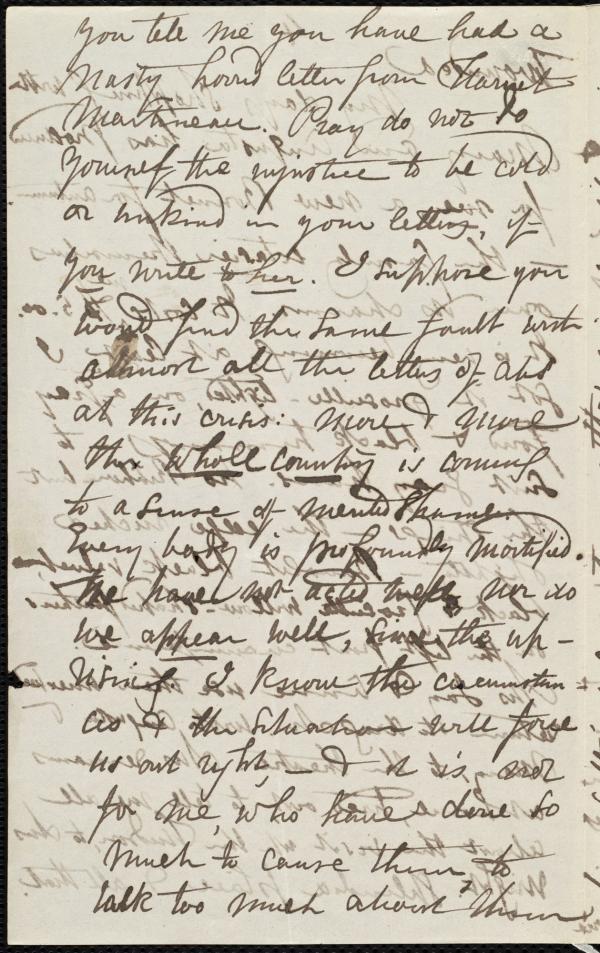 you tell me you have had a
nasty horrid letter from Harriet
Martineau. Pray do not do
yourself the injustice to be cold
or unkind in your letters, if
you write to her. I suppose you
would find the same fault with
almost all the letters of abs
at this crisis: more & more
this whole country is coming
to a sense of merited shame.
Every body is profoundly mortified.
We have not acted well, nor do
we appear well, since the up-
rising. I know the circumstan-
ces & the situation will force
us out right, — & it is not
for me, who have done so
much to cause them, to
talk too much about them